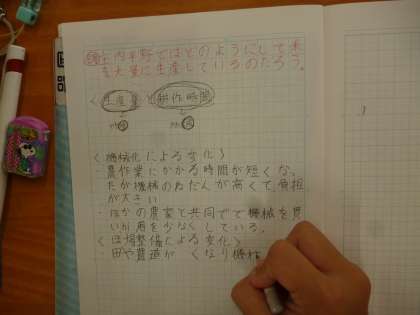 庄内平野ではどのようにして米
を大量に生産しているのだろう。
生産量 耕作時間
〈機械化による変化〉
農作業にかかる時間が短くな
たが機械のねだんが高くて、負担
が大さい
・ほかの農家と共同でで機械を買
い、 用を少なくしている。
〈ほ場整備による変化〉
・田や農道が くなり機械